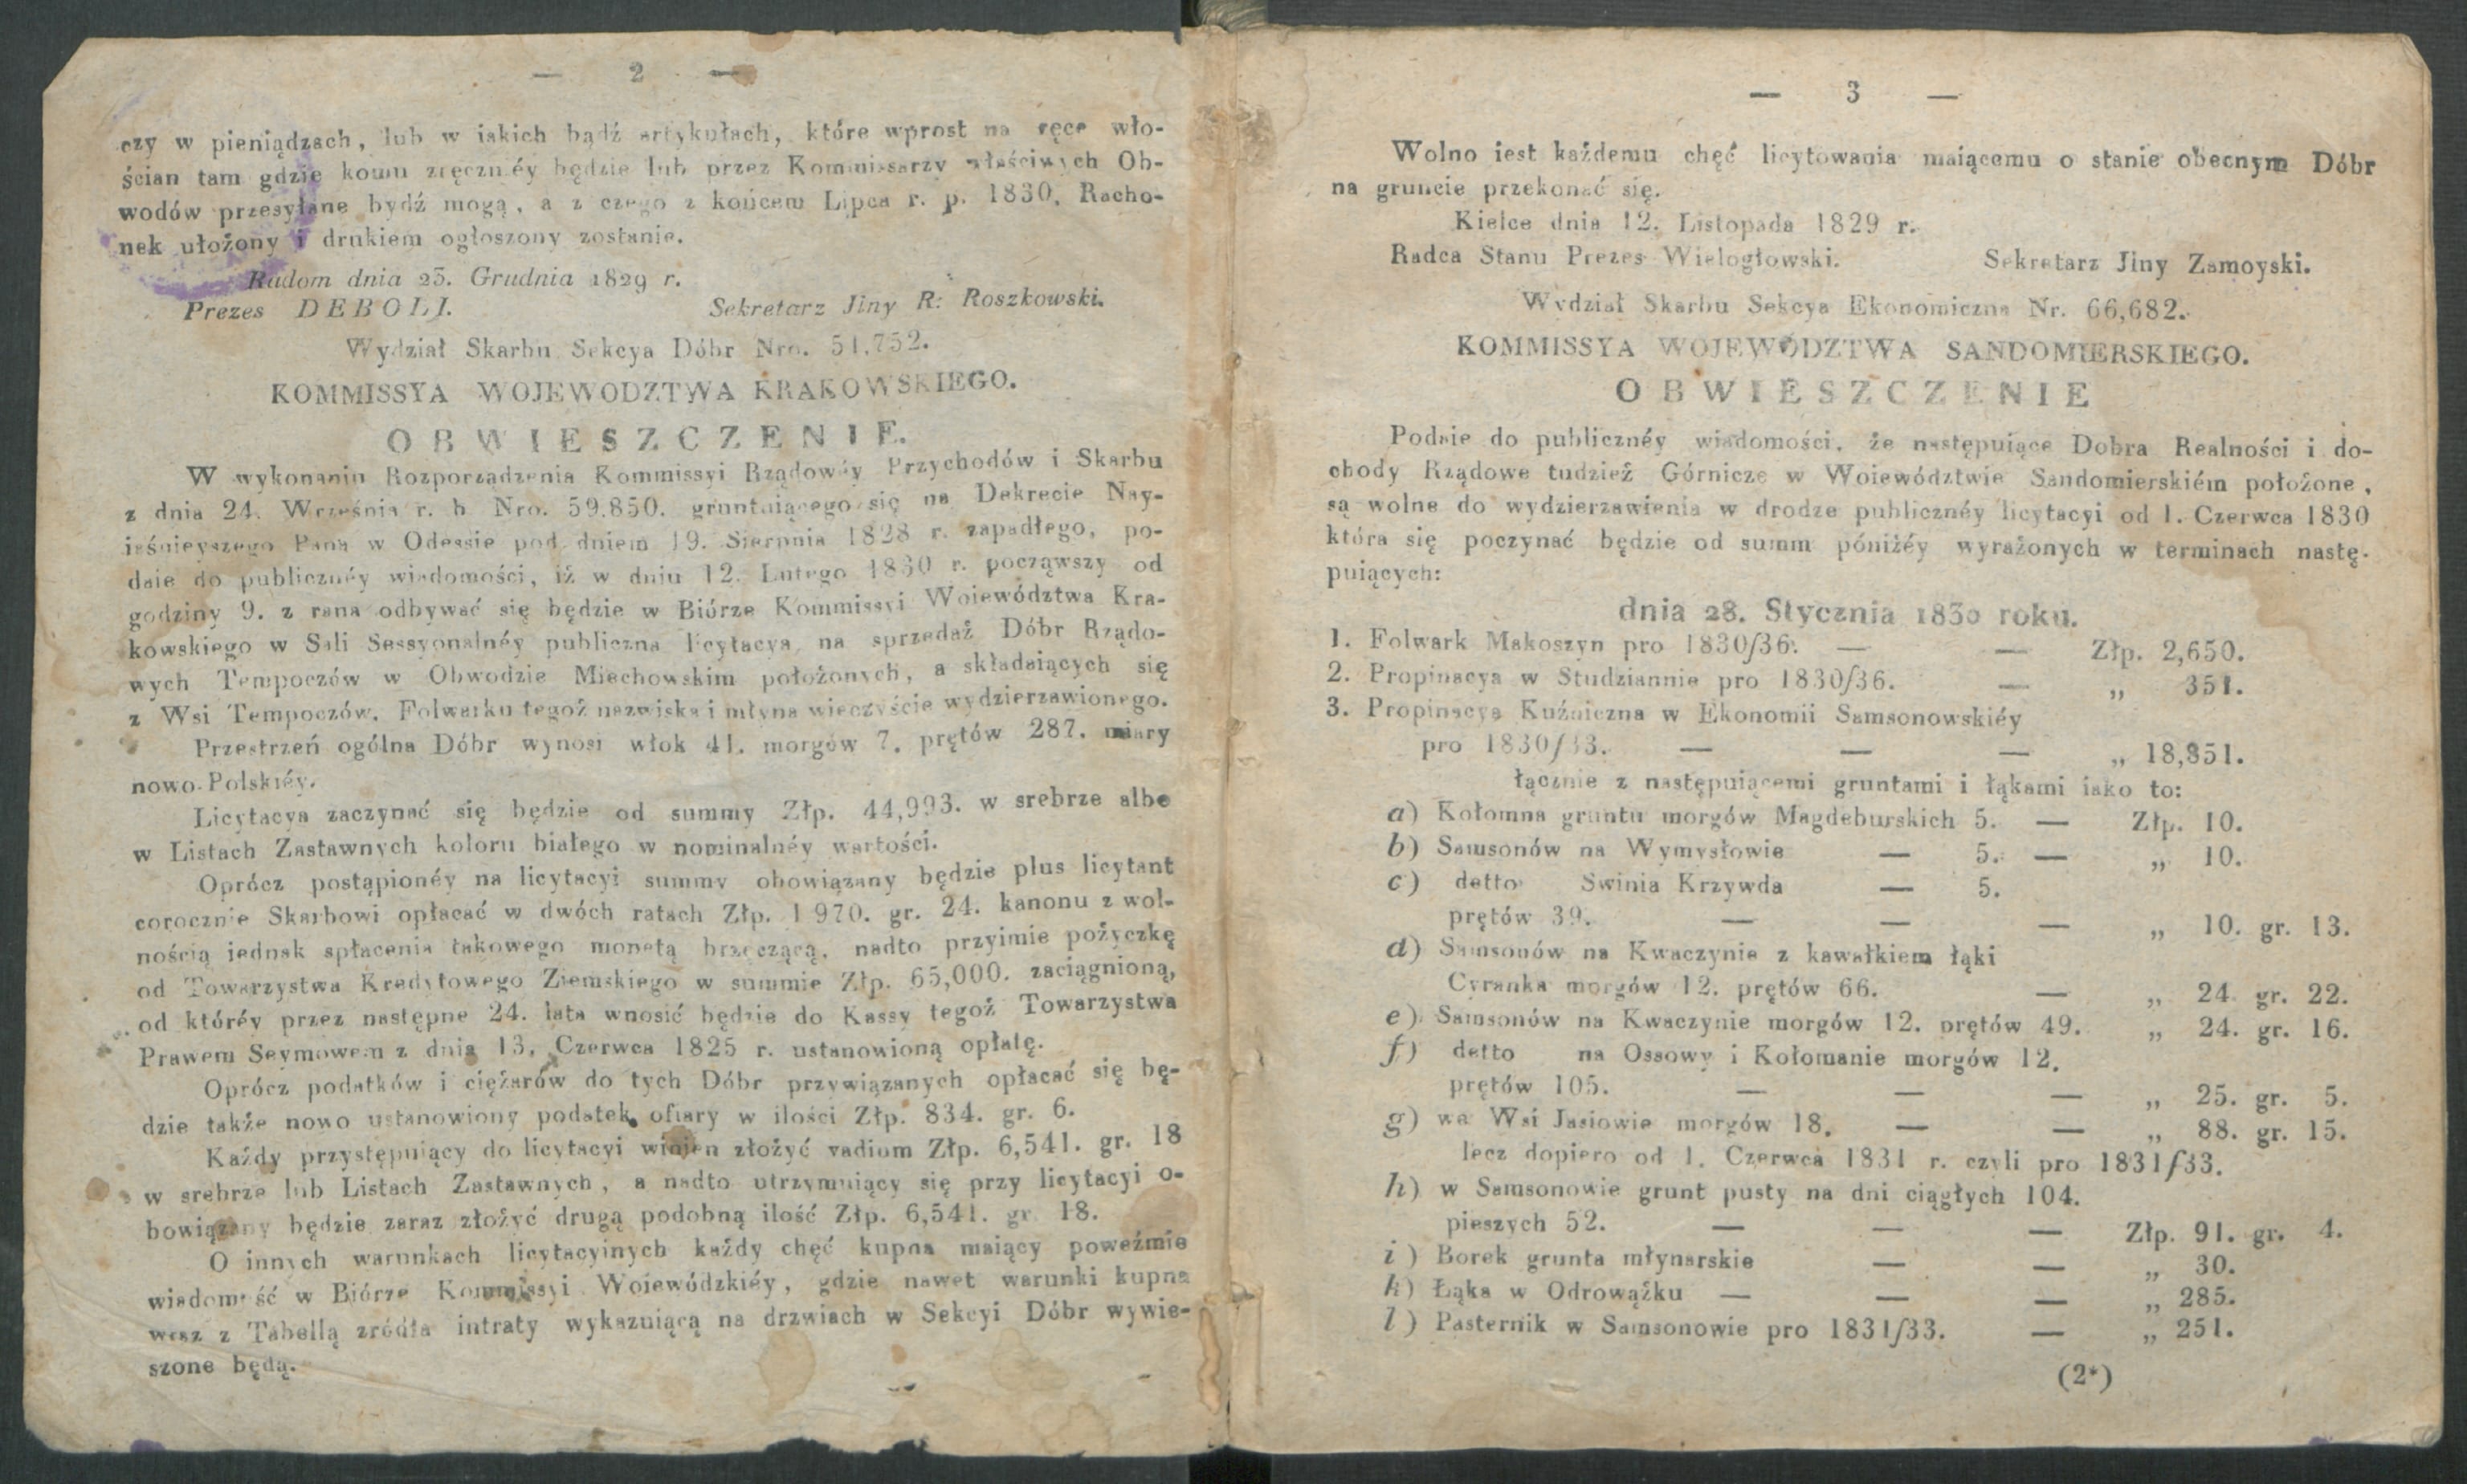 — 2 —
czy w pieniądzach, lub w iakich bądź artykułach, które wprost na ręce wło-
ścian tam gdzie komu zręcznéy będzie lub przez Kommissarzy właściwych Ob-
wodów przesyłane bydź mogą, a z czego z końcem Lipca r. p. 1830, Racho-
nek ułożony i drukiem ogłoszony zostanie.
Radom dnia 23. Grudnia 1829 r.
Prezes DEBOLI. Sekretarz Jlny R: Roszkowski.
Wydział Skarbu Sekcya Dóbr Nro. 51,752.
KOMMISSYA WOJEWODZTWA KRAKOWSKIEGO.
OBWIESZCZENIE.
W wykonaniu Rozporządzenia Kommissyi Rządowéy Przychodów i Skarbu
z dnia 24. Września r. b. Nro. 59,850. gruntuiącego się na Dekrecie Nay-
iaśnieyszego Pana w Odessie pod dniem 19. Sierpnia 1828 r. zapadłego, po-
daie do publicznéy wiadomości, iż w dniu 12. Lutego 1830 r. począwszy od
godziny 9. z rana odbywać się będzie w Biórze Kommissyi Woiewództwa Kra-
kowskiego w Sali Sessyonalnéy publiczna licytacya na sprzedaż Dóbr Rządo-
wych Tempoczów w Obwodzie Miechowskim położonych, a składaiących się
z Wsi Tempoczów, Folwarku tegoż nazwiska i młyna wieczyście wydzierzawionego.
Przestrzeń ogólna Dóbr wynosi włok 41. morgów 7. prętów 287. miary
nowo-Polskiéy.
Licytacya zaczynać się będzie od summy Złp. 44,993. w srebrze albo
w Listach Zastawnych koloru białego w nominalnéy wartości.
Oprócz postąpionéy na licytacyi summy obowiązany będzie plus licytant
corocznie Skarbowi opłacać w dwóch ratach Złp. 1970. gr. 24. kanonu z wol-
nością iednak spłacenia takowego monetą brzęczącą, nadto przyimie pożyczkę
od Towarzystwa Kredytowego Ziemskiego w summie Złp. 65,000. zaciągnioną,
od któréy przez następne 24. lata wnosić będzie do Kassy tegoż Towarzystwa
Prawem Seymowem z dnia 13. Czerwca 1825 r. ustanowioną opłatę.
Oprócz podatków i ciężarów do tych Dóbr przywiązanych opłacać się bę-
dzie także nowo ustanowiony podatek ofiary w ilości Złp. 834. gr. 6.
Każdy przystępuiący do licytacyi winien złożyć vadium Złp. 6,541. gr. 18
w srebrze lub Listach Zastawnych, a nadto utrzymuiący się przy licytacyi o-
bowiązany będzie zaraz złożyć drugą podobną ilość Złp. 6,541. gr. 18.
O innych warunkach licytacyinych każdy chęć kupna maiący poweźmie
wiadomość w Biórze Kommissyi Woiewódzkiéy, gdzie nawet warunki kupna
wraz z Tabellą zródła intraty wykazuiącą na drzwiach w Sekcyi Dóbr wywie-
szone będą.
— 3 —
Wolno iest każdemu chęć licytowania maiącemu o stanie obecnym Dóbr
na gruncie przekonać się.
Kielce dnia 12. Listopada 1829 r.
Radca Stanu Prezes Wielogłowski. Sekretarz Jlny Zamoyski.
Wydział Skarbu Sekcya Ekonomiczna Nr. 66,682.
KOMMISSYA WOJEWÓDZTWA SANDOMIERSKIEGO.
OBWIESZCZENIE
Podaie do publicznéy wiadomości, że następuiące Dobra Realności i do-
chody Rządowe tudzież Górnicze w Woiewództwie Sandomierskiém położone,
są wolne do wydzierzawienia w drodze publicznéy licytacyi od 1. Czerwca 1830
która się poczynać będzie od summ póniżéy wyrażonych w terminach nastę-
puiących:
dnia 28. Stycznia 1830 roku.
1. Folwark Makoszyn pro 1830/36. — — Złp. 2,650.
2. Propinacya w Studziannie pro 1830/36. — „ 351.
3. Propinacya Kuźniczna w Ekonomii Samsonowskiéy
pro 1830/33. — — — „ 18,851.
łącznie z następuiącemi gruntami i łąkami iako to:
a) Kołomna gruntu morgów Magdeburskich 5. — Złp. 10.
b) Samsonów na Wymysłowie — 5. — „ 10.
c) detto Swinia Krzywda — 5.
prętów 39. — — — „ 10. gr. 13.
d) Samsonów na Kwaczynie z kawałkiem łąki
Cyranka morgów 12. prętów 66. — „ 24. gr. 22.
e) Samsonów na Kwaczynie morgów 12. prętów 49. „ 24. gr. 16.
f) detto na Ossowy i Kołomanie morgów 12.
prętów 105. — — — „ 25. gr. 5.
g) wa Wsi Jasiowie morgów 18. — — „ 88. gr. 15.
lecz dopiero od 1. Czerwca 1831 r. czyli pro 1831/33.
h) w Samsonowie grunt pusty na dni ciągłych 104.
pieszych 52. — — — Złp. 91. gr. 4.
i) Borek grunta młynarskie — — „ 30.
k) Łąka w Odrowążku — — — „ 285.
l) Pasternik w Samsonowie pro 1831/33. — „ 251.
(2*)